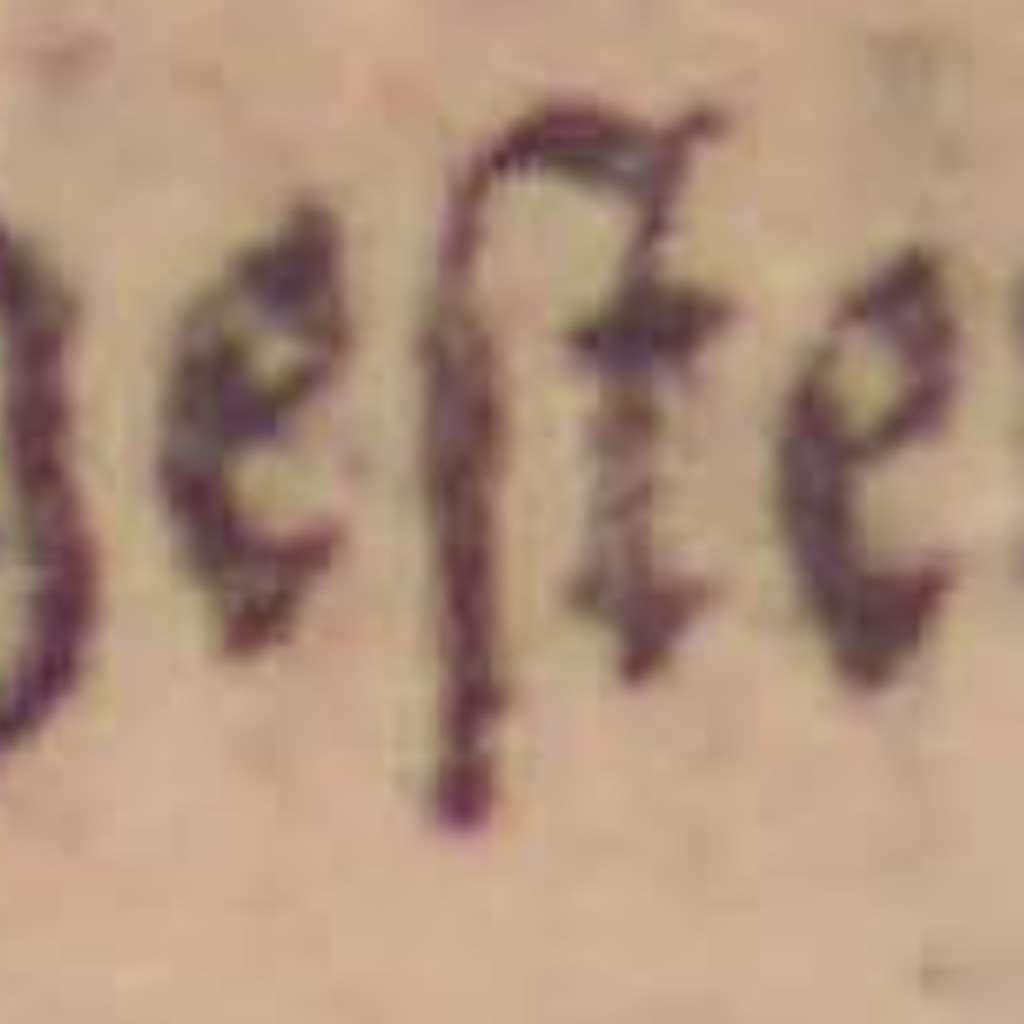 eſte